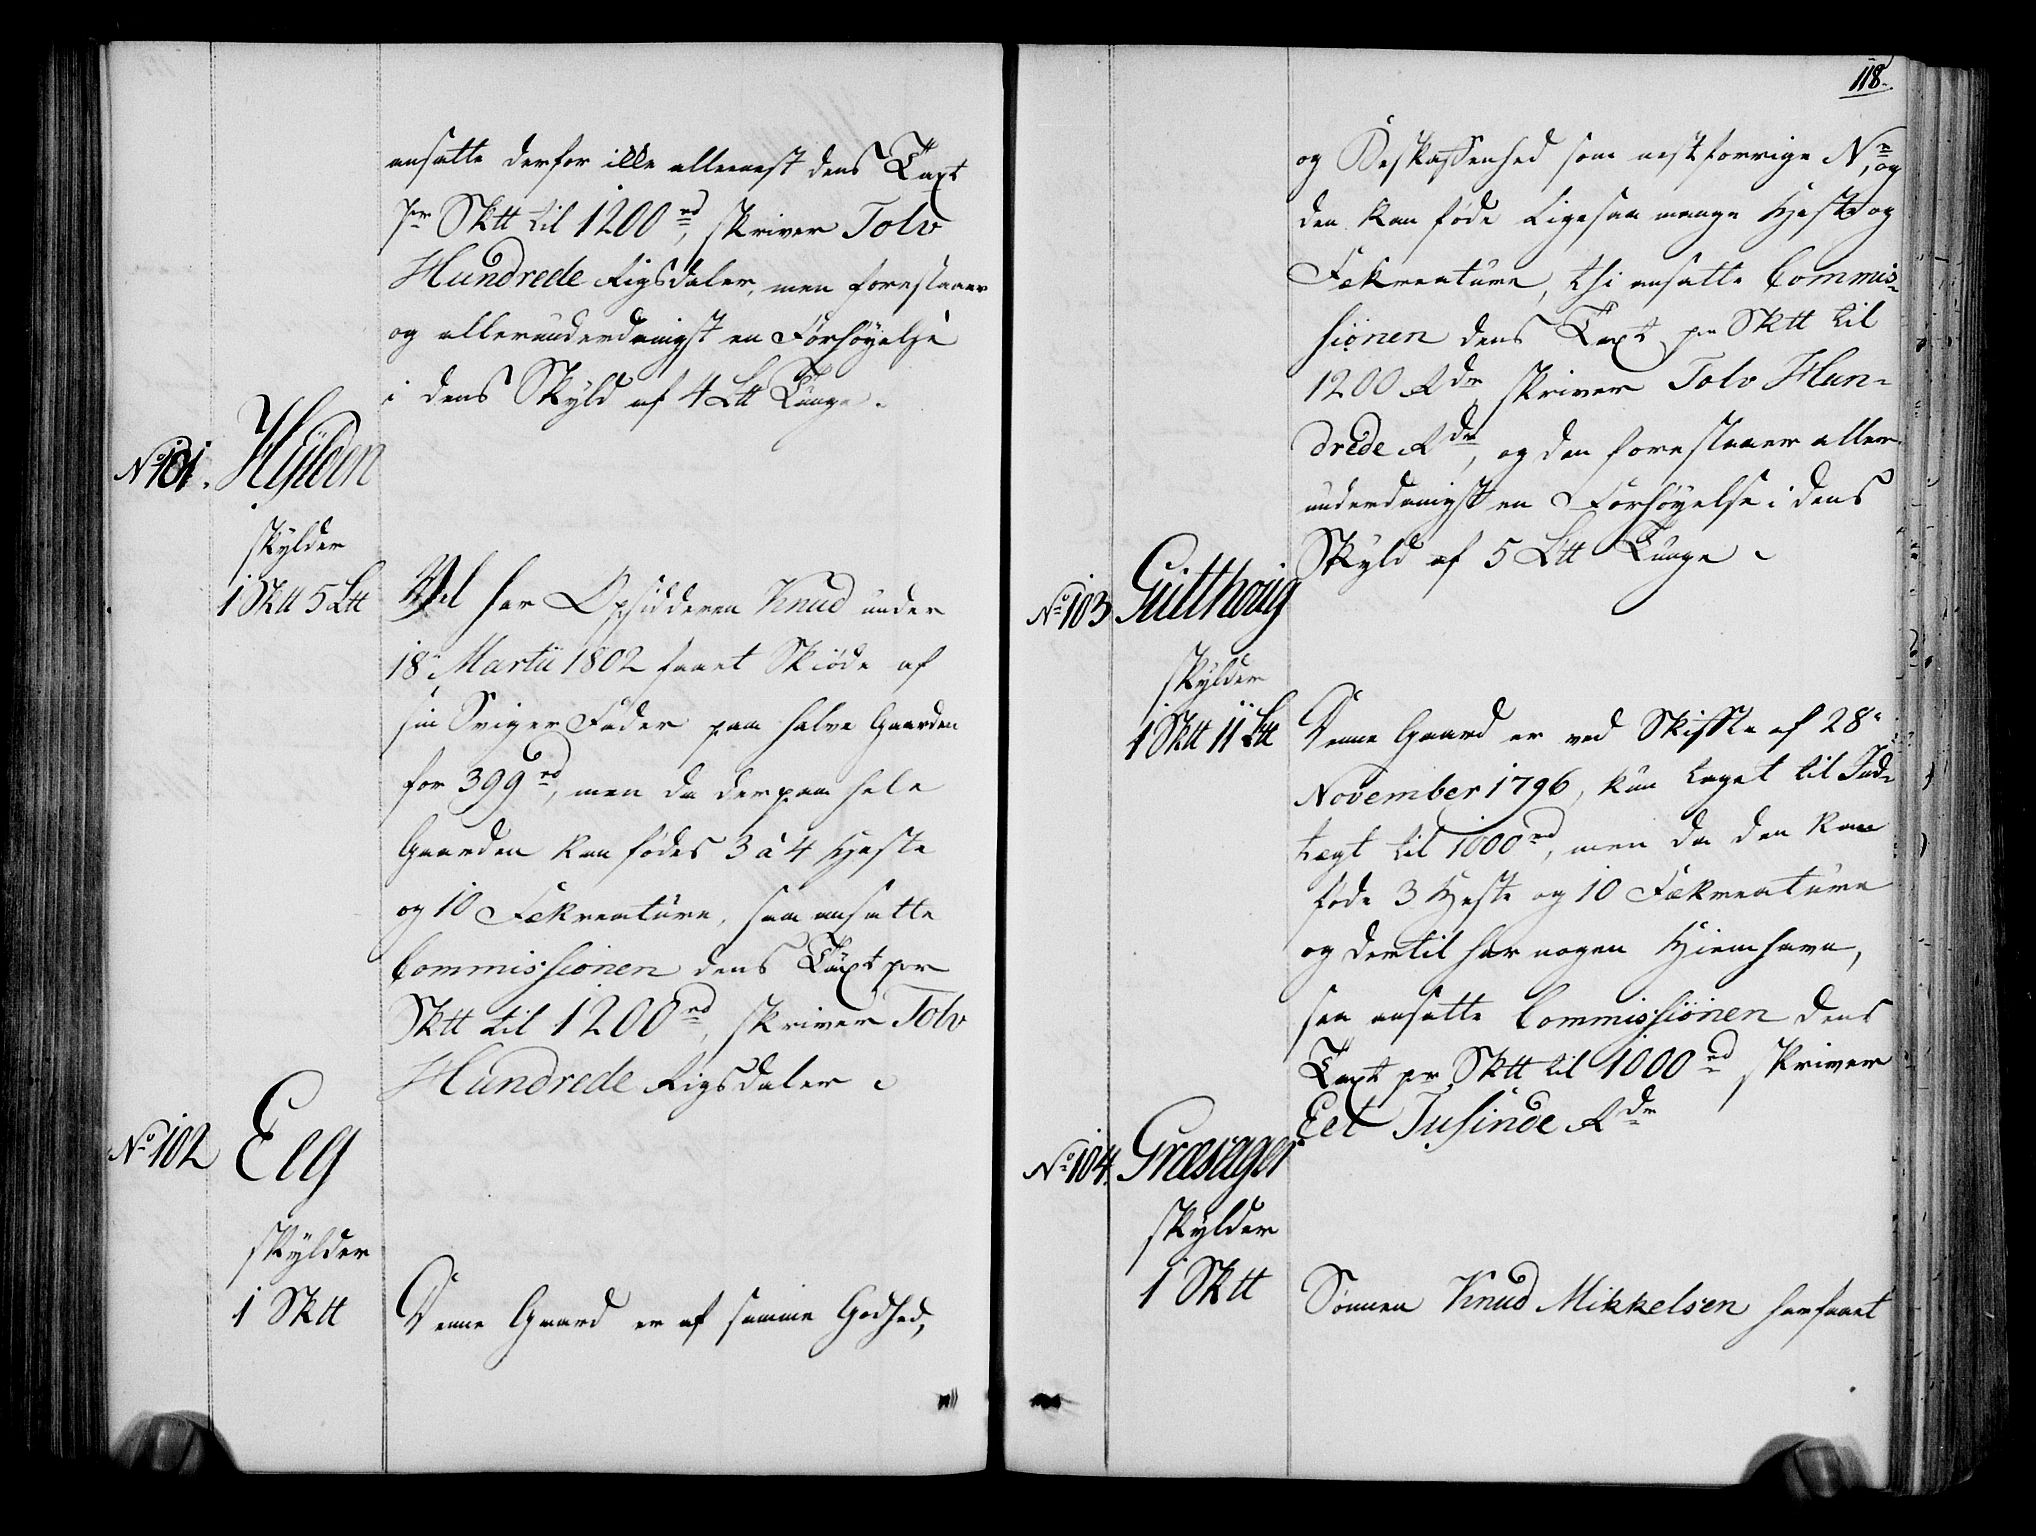 ansatte derfor ikke allernest dens Taxt
pr Sktt til 1200 rd, skriver Tolv
Hundrede Rigsdaler, men forestaaer
og allerunderdanigst en Forhøyelse
i dens Skyld af 4 Ltt Tunge.
No 101. Hÿlden
skylder
1 Sktt 5 Ltt
Vel har Opsidderen Knud under
18 Martii 1802 faaet Skiøde af
sin Sviger Fader paa halve Gaarden
for 399 rd, men da derpaa hele
Gaarden kan fødes 3 à 4 Heste
og 10 Fækreature, saa ansatte
Commissionen dens Taxt pr
Sktt til 1200 rd, skriver Tolv
Hundrede Rigsdaler
No 102 Eeg
skylder
1 Sktt
Denne Gaard er af samme Godhed,
118.
og Beskaffenhed som nestforrige Nr, og
den kan føde ligesaa mange Heste og
Fækreature, thi ansatte Commis-
sionen dens Taxt pr Sktt til
1200 Rdr skriver Tolv Hun-
drede Rdr, og den forestaaer aller
underdanigst en Forhøyelse i dens
Skyld af 5 Ltt Tunge
No 103 Guldhoug
skylder
1 Sktt 11 Ltt
Denne Gaard er ved Skifte af 28
November 1796, kun taget til Ind-
tægt til 1000 rd, men da den kan
føde 3 Heste og 10 Fækreature
og dertil har nogen Hiemhavn,
saa ansatte Commissionen dens
Taxt pr Sktt til 1000 rd skriver
Eet Tusinde Rdr
No 104. Græsager
skylder
1 Sktt
Sønnen Knud Mikkelsen har faaet